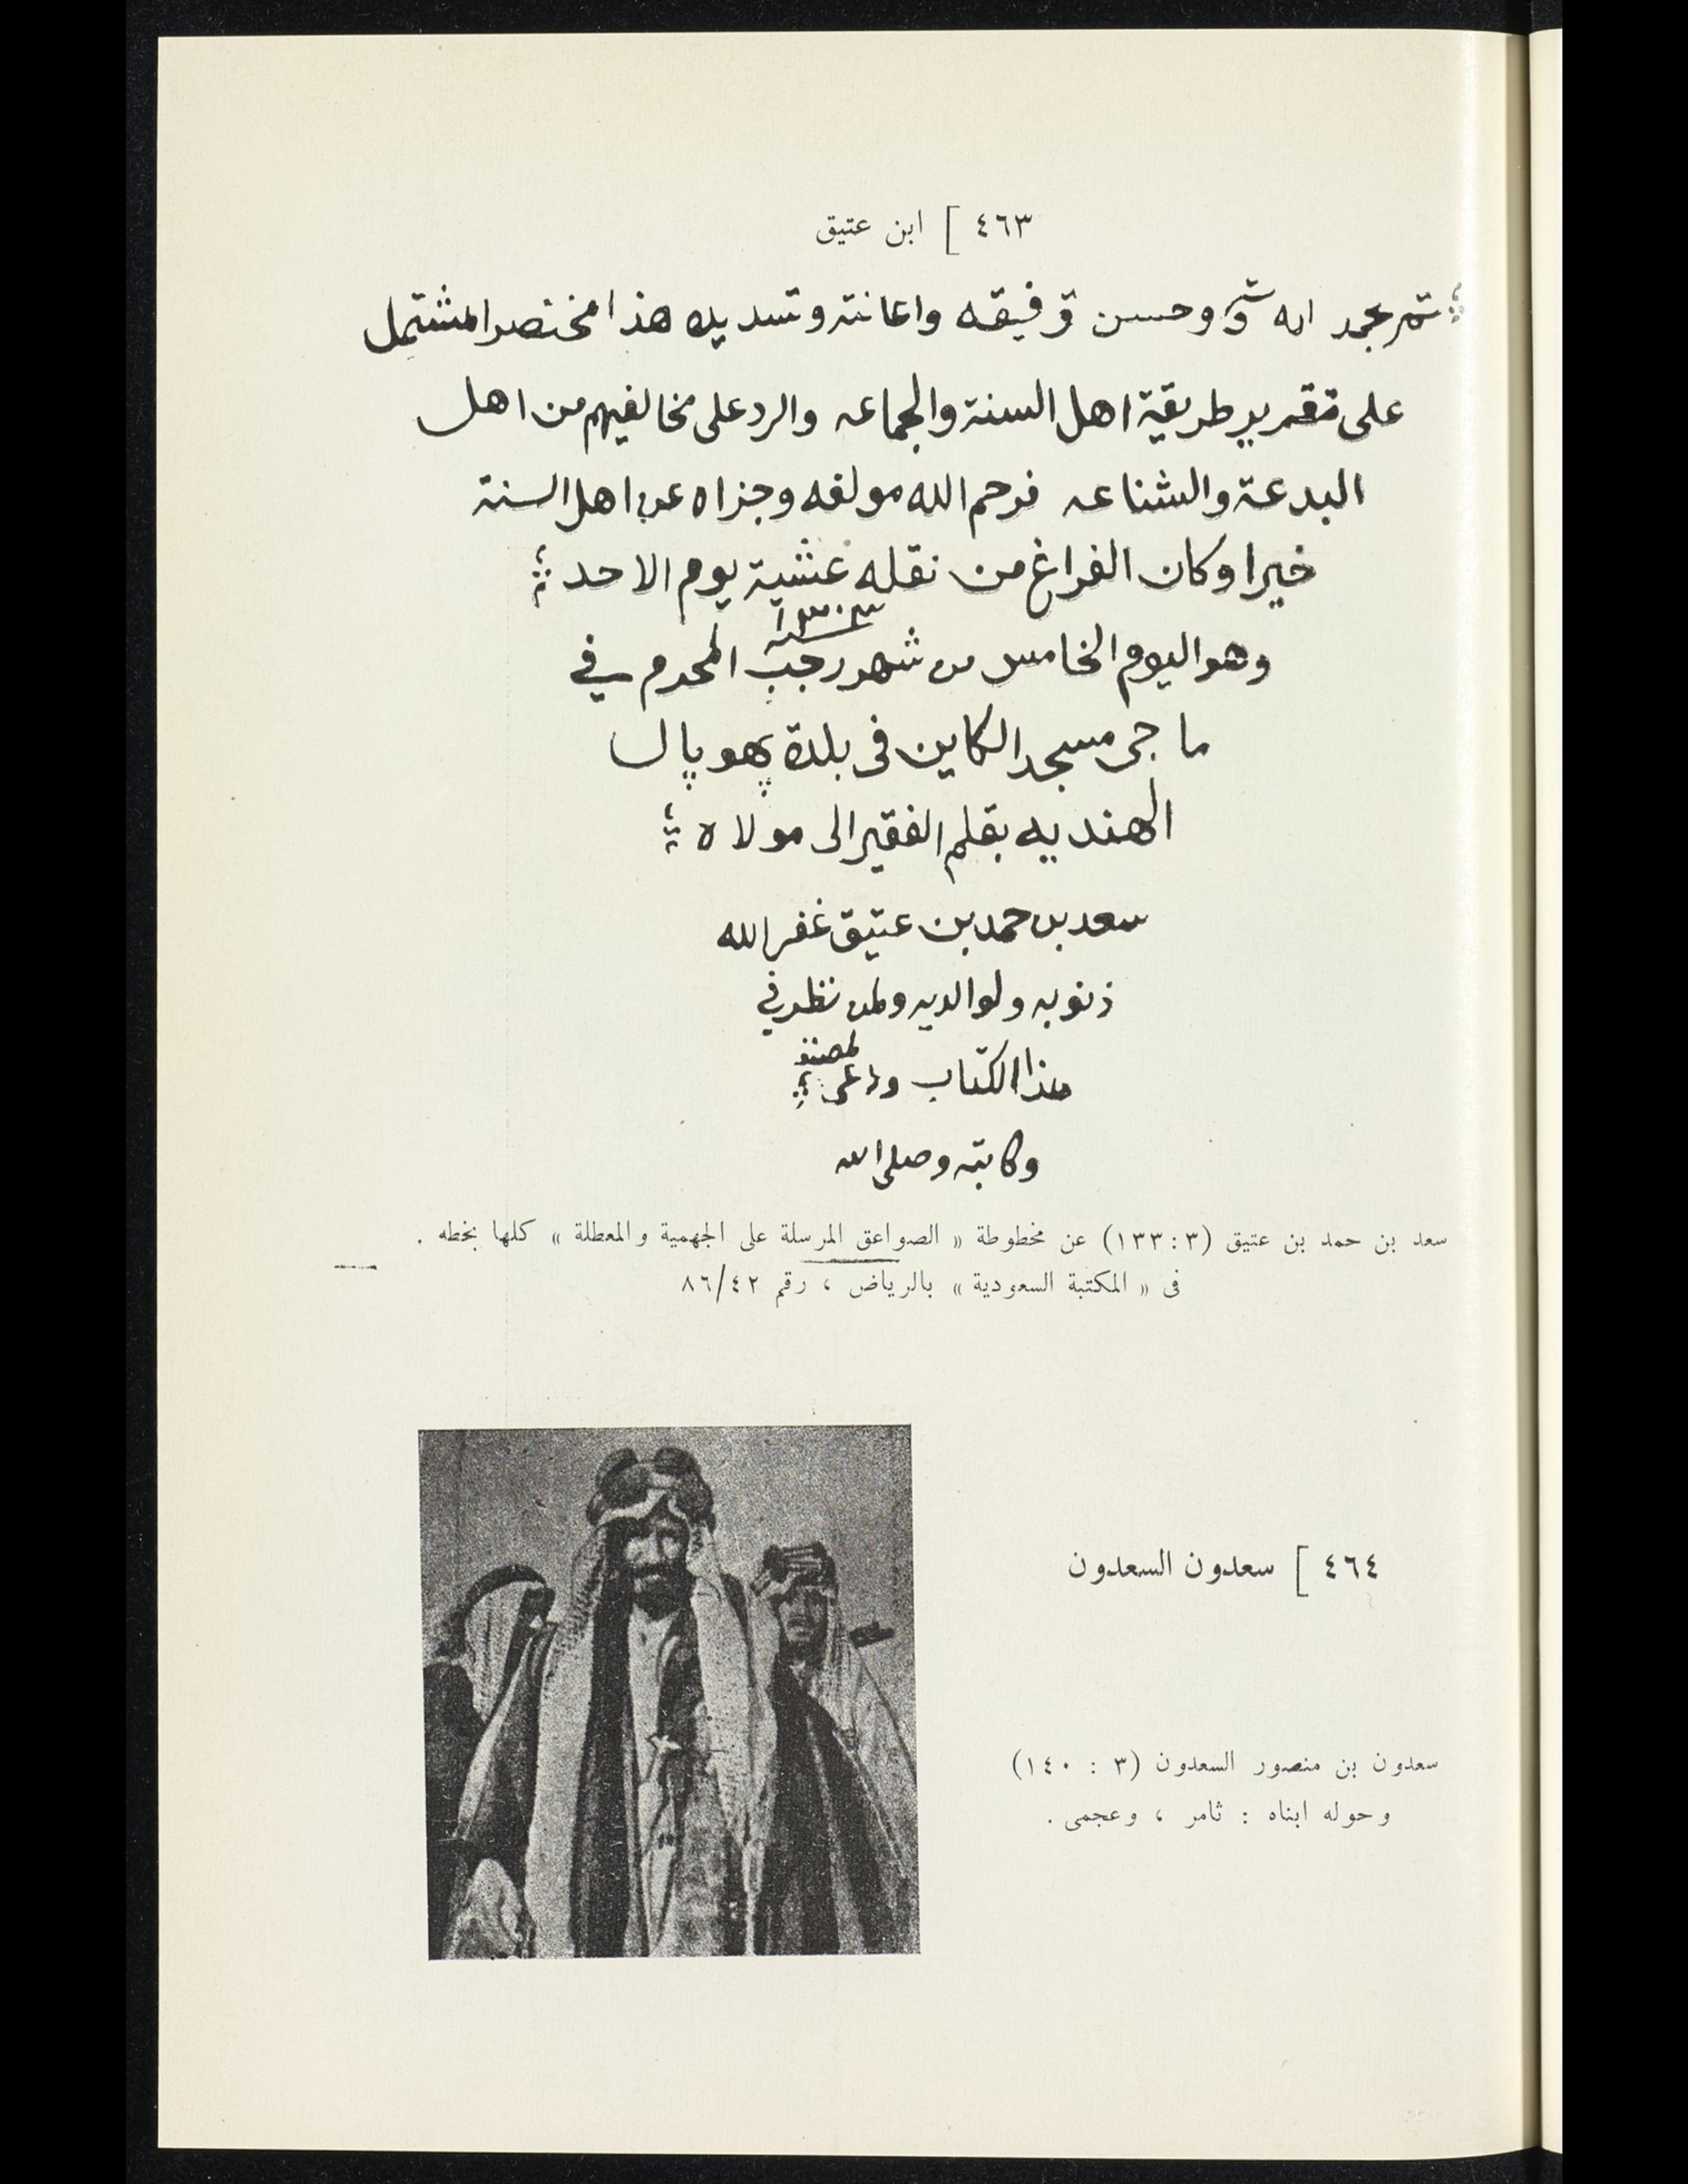 ٤٦٣ ] ابن عتيق
تم بحمد الله وحسن توفيقه واعانته وتسديده هذا المختصر المشتمل
على تقرير طريقة اهل السنة والجماعه والرد على مخالفيهم من اهل
البدعة والشناعه فرحم الله مولفه وجزاه عن اهل السنة
خيرا وكان الفراغ من نقله عشية يوم الاحد
وهو اليوم الخامس من شهر رجب المحرم في
سنة ١٣٠٣
ما جى مسجد الكاين في بلدة پهوپال
الهنديه بقلم الفقير الى مولاه
سعد بن حمد بن عتيق غفر الله
ذنوبه ولوالديه ولمن نظر في
هذا الكتاب
وكاتبه وصلى الله
سعد بن حمد بن عتيق (٣ : ١٣٣) عن مخطوطة « الصواعق المرسلة على الجهمية والمعطلة » كلها بخطه .
فى « المكتبة السعودية » بالرياض ، رقم ٨٦/٤٢
٤٦٤ ] سعدون السعدون
سعدون بن منصور السعدون (٣ : ١٤٠)
وحوله ابناه : ثامر ، وعجمى .